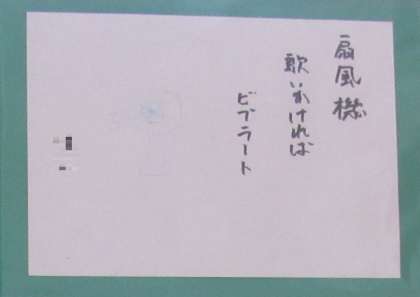 扇風機
歌いかければ
ビブラート